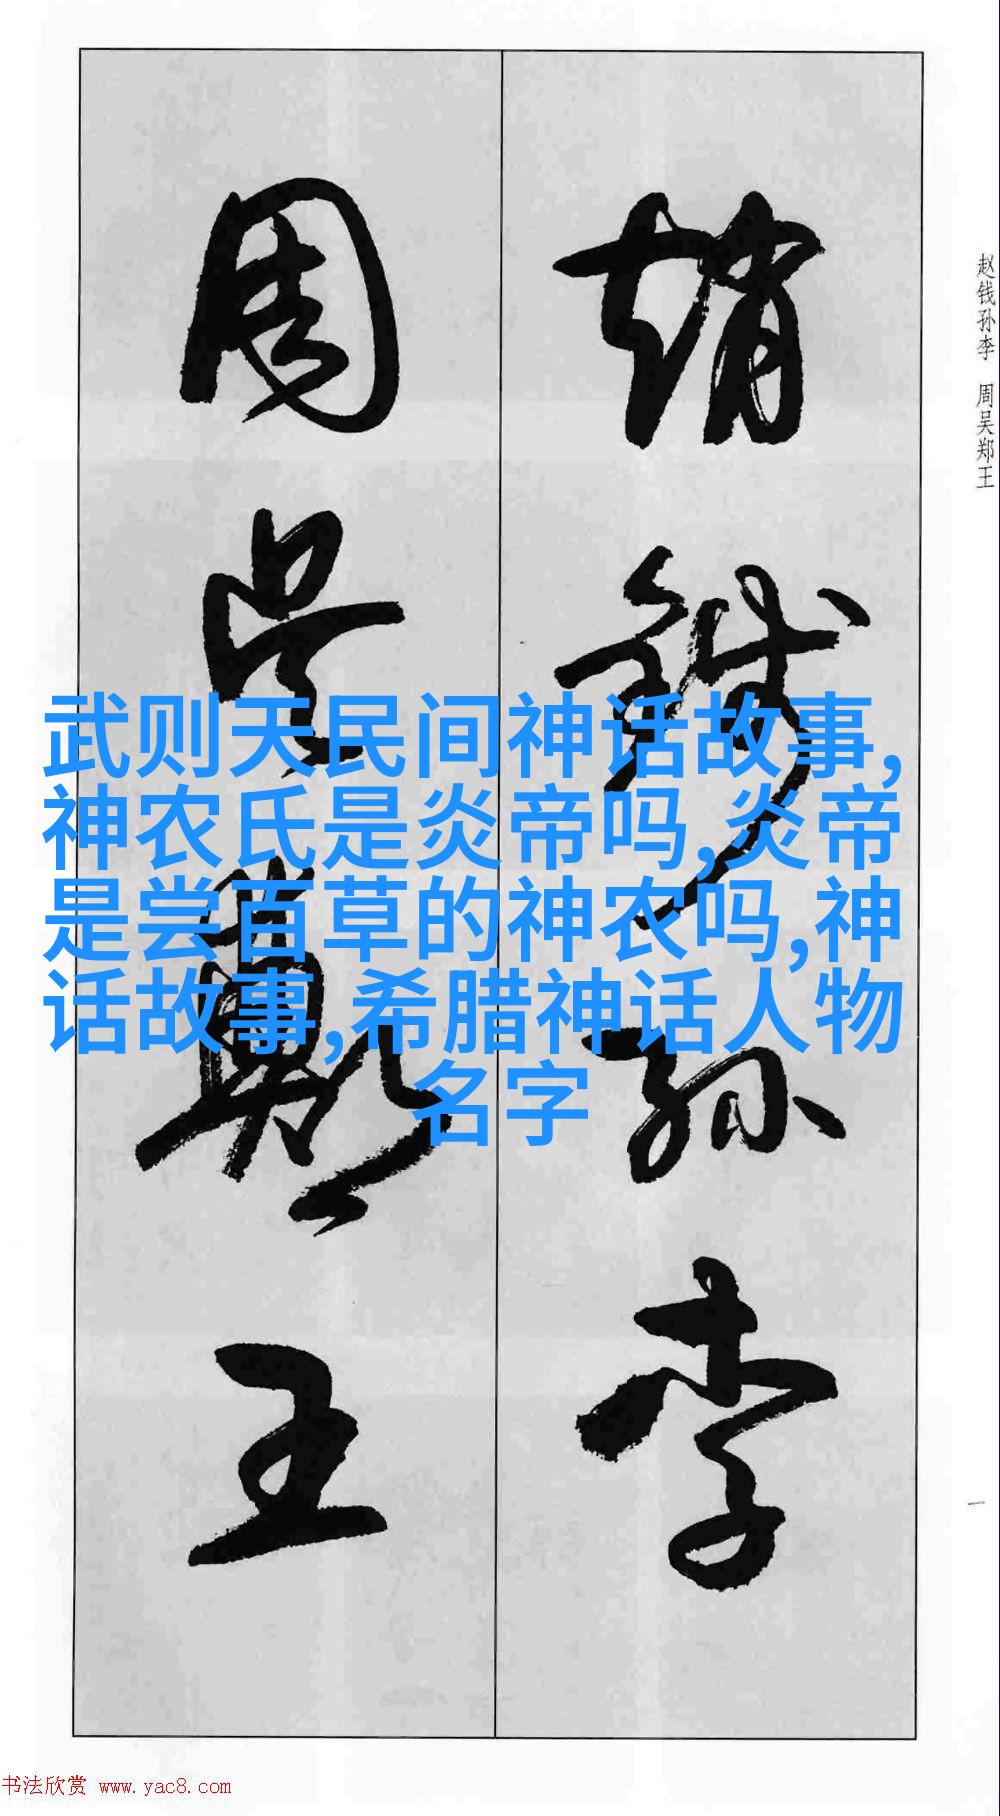 趙錢孫李
周吴鄭王
赵钱孙李 周吴郑王
武则天民间神话故事,
神农氏是炎帝吗,炎帝
是尝百草的神农吗,神
话故事,希腊神话人物
名字
一
书法欣赏 www.yac8.com